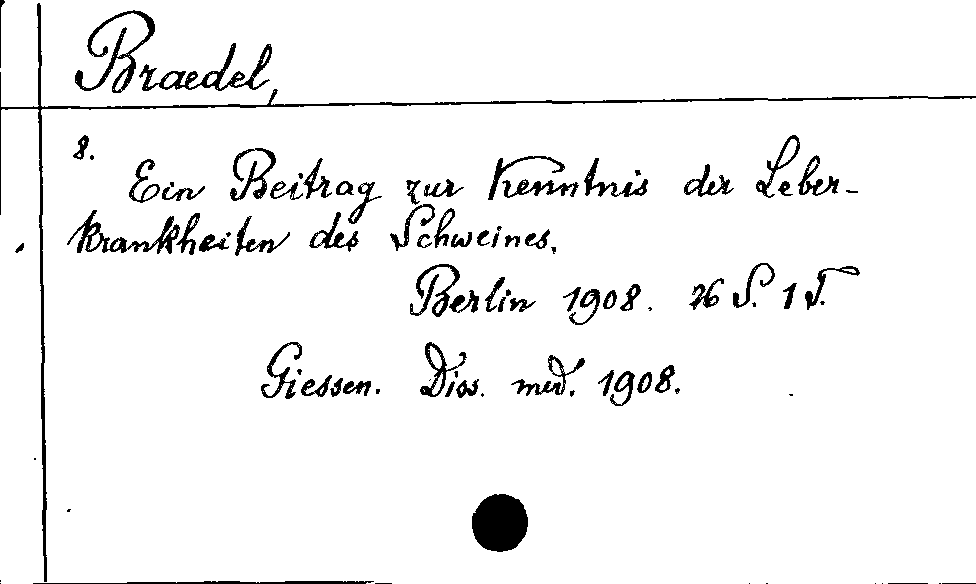 Braedel,
8.
Ein Beitrag zur Kenntnis der Leber-
krankheiten des Schweines.
Berlin 1908. 26 S. 1 T.
Giessen. Diss. med. 1908.